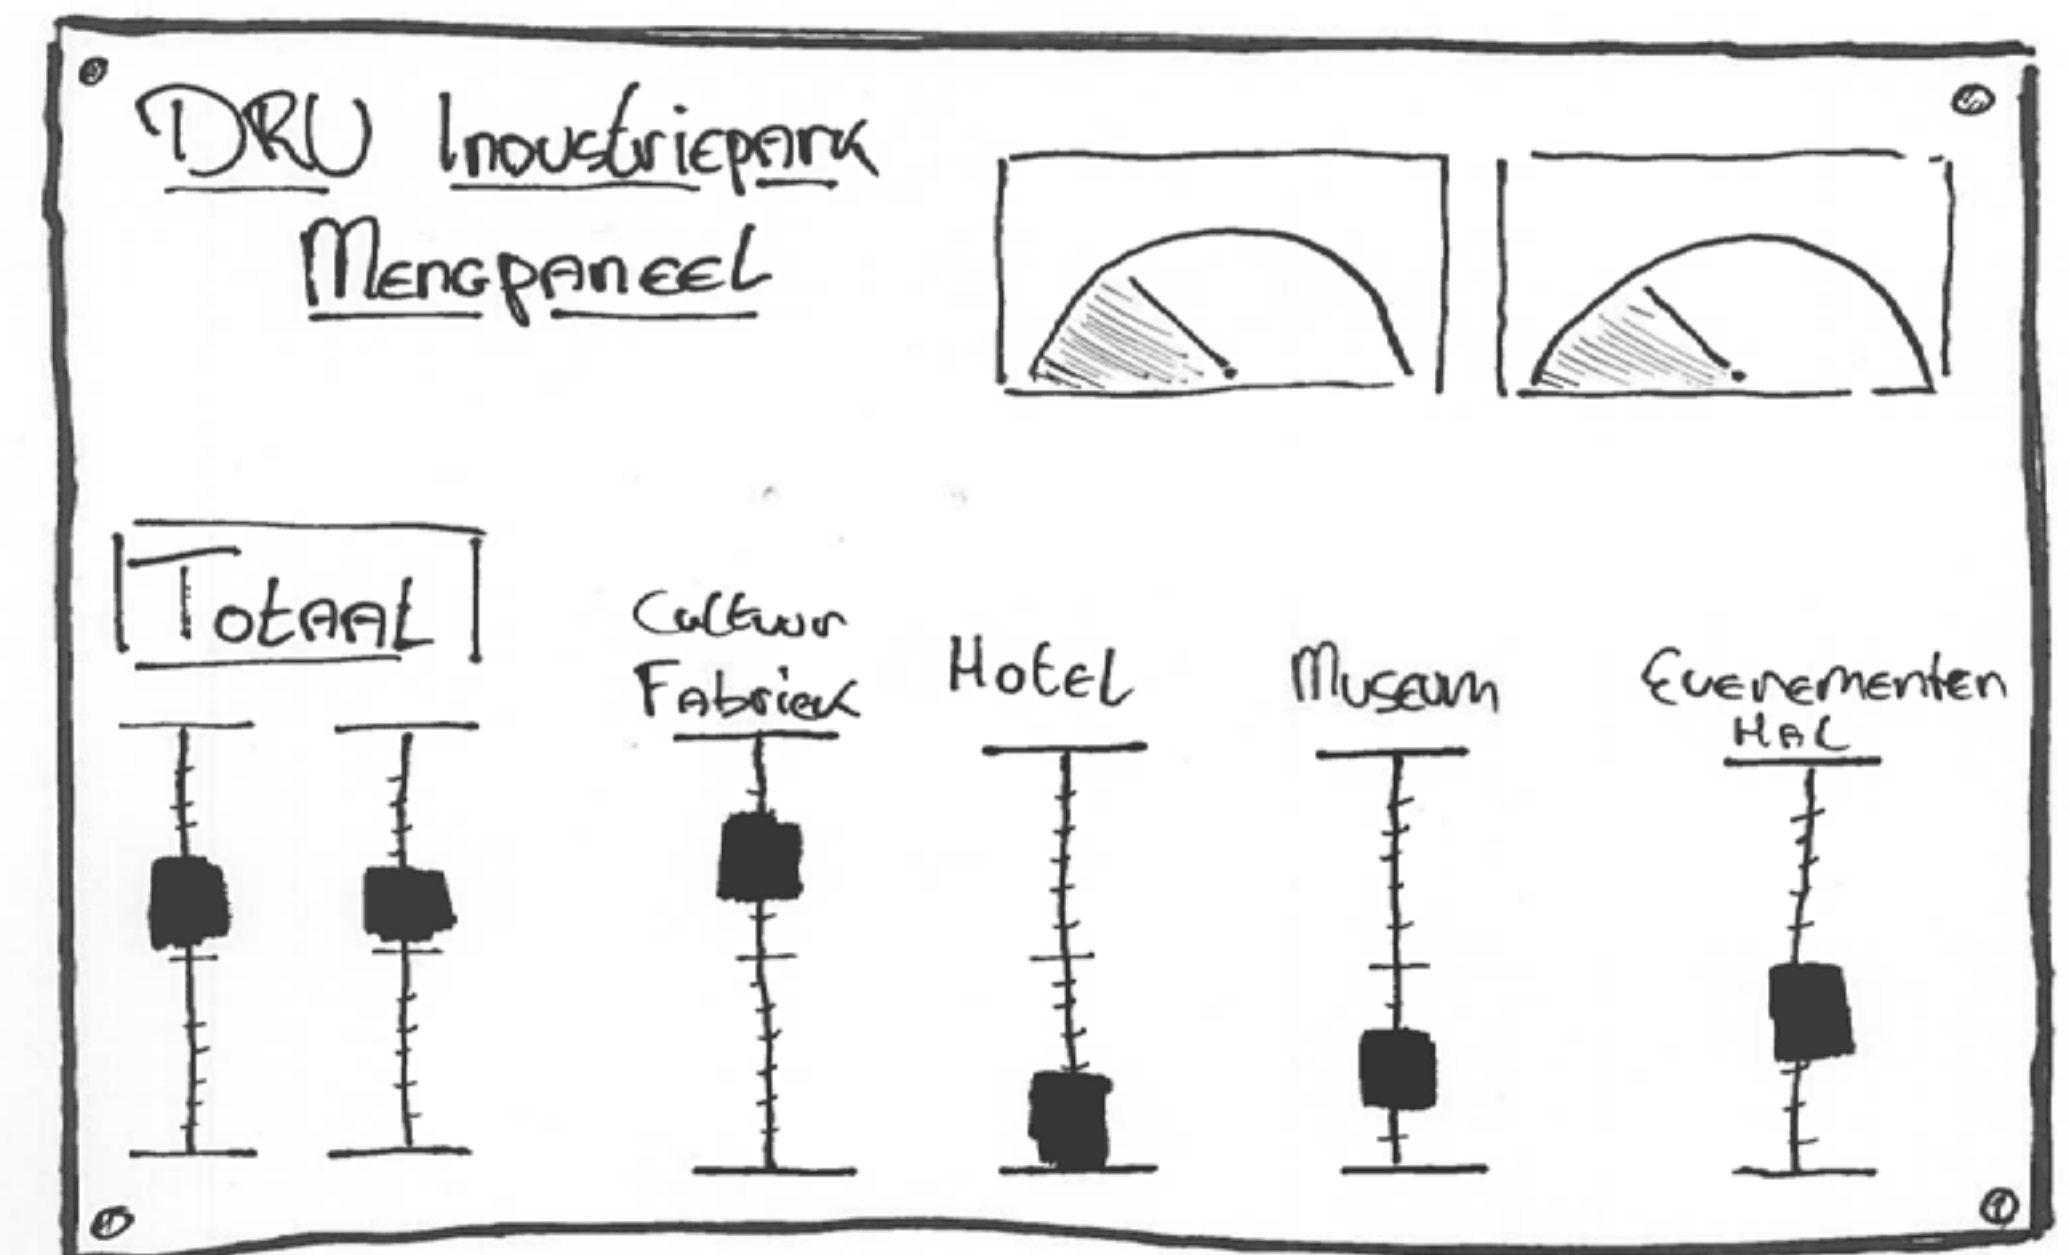 DRU Industriepark
Mengpaneel
Totaal
Cultuur
Fabriek
Hotel
Museum
Evenementen
Hal